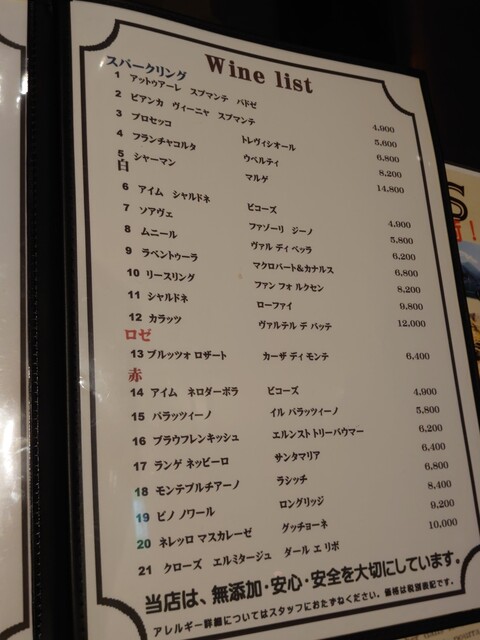 Wine list
スパークリング
1 アットゥアーレ スプマンテ パドゼ 4,900
2 ビアンカ ヴィーニャ スプマンテ 5,600
3 プロセッコ トレヴィジオール 6,800
4 フランチャコルタ ウベルティ 8,200
5 シャーマン マルゲ 14,800
白
6 アイム シャルドネ ビコーズ 4,900
7 ソアヴェ ファゾーリ ジーノ 5,800
8 ムニール ヴァル ディ ベッラ 6,200
9 ラベントゥーラ マクロバート&カナルス 6,800
10 リースリング ファン フォルクセン 8,200
11 シャルドネ ローファイ 9,800
12 カラッツ ヴァルテル デ バッテ 12,000
ロゼ
13 ブルッツォ ロザート カーザ ディ モンテ 6,400
赤
14 アイム ネロダーボラ ビコーズ 4,900
15 パラッツィーノ イル パラッツィーノ 5,800
16 ブラウフレンキッシュ エルンスト トリーバウマー 6,200
17 ランゲ ネッビーロ サンタマリア 6,400
18 モンテプルチアーノ ラシッチ 6,800
19 ピノ ノワール ロングリッジ 8,400
20 ネレッロ マスカレーゼ グッチョーネ 9,200
21 クローズ エルミタージュ ダール エ リボ 10,000
当店は、無添加・安心・安全を大切にしています。
アレルギー詳細についてはスタッフにおたずねください。価格は税別表記です。